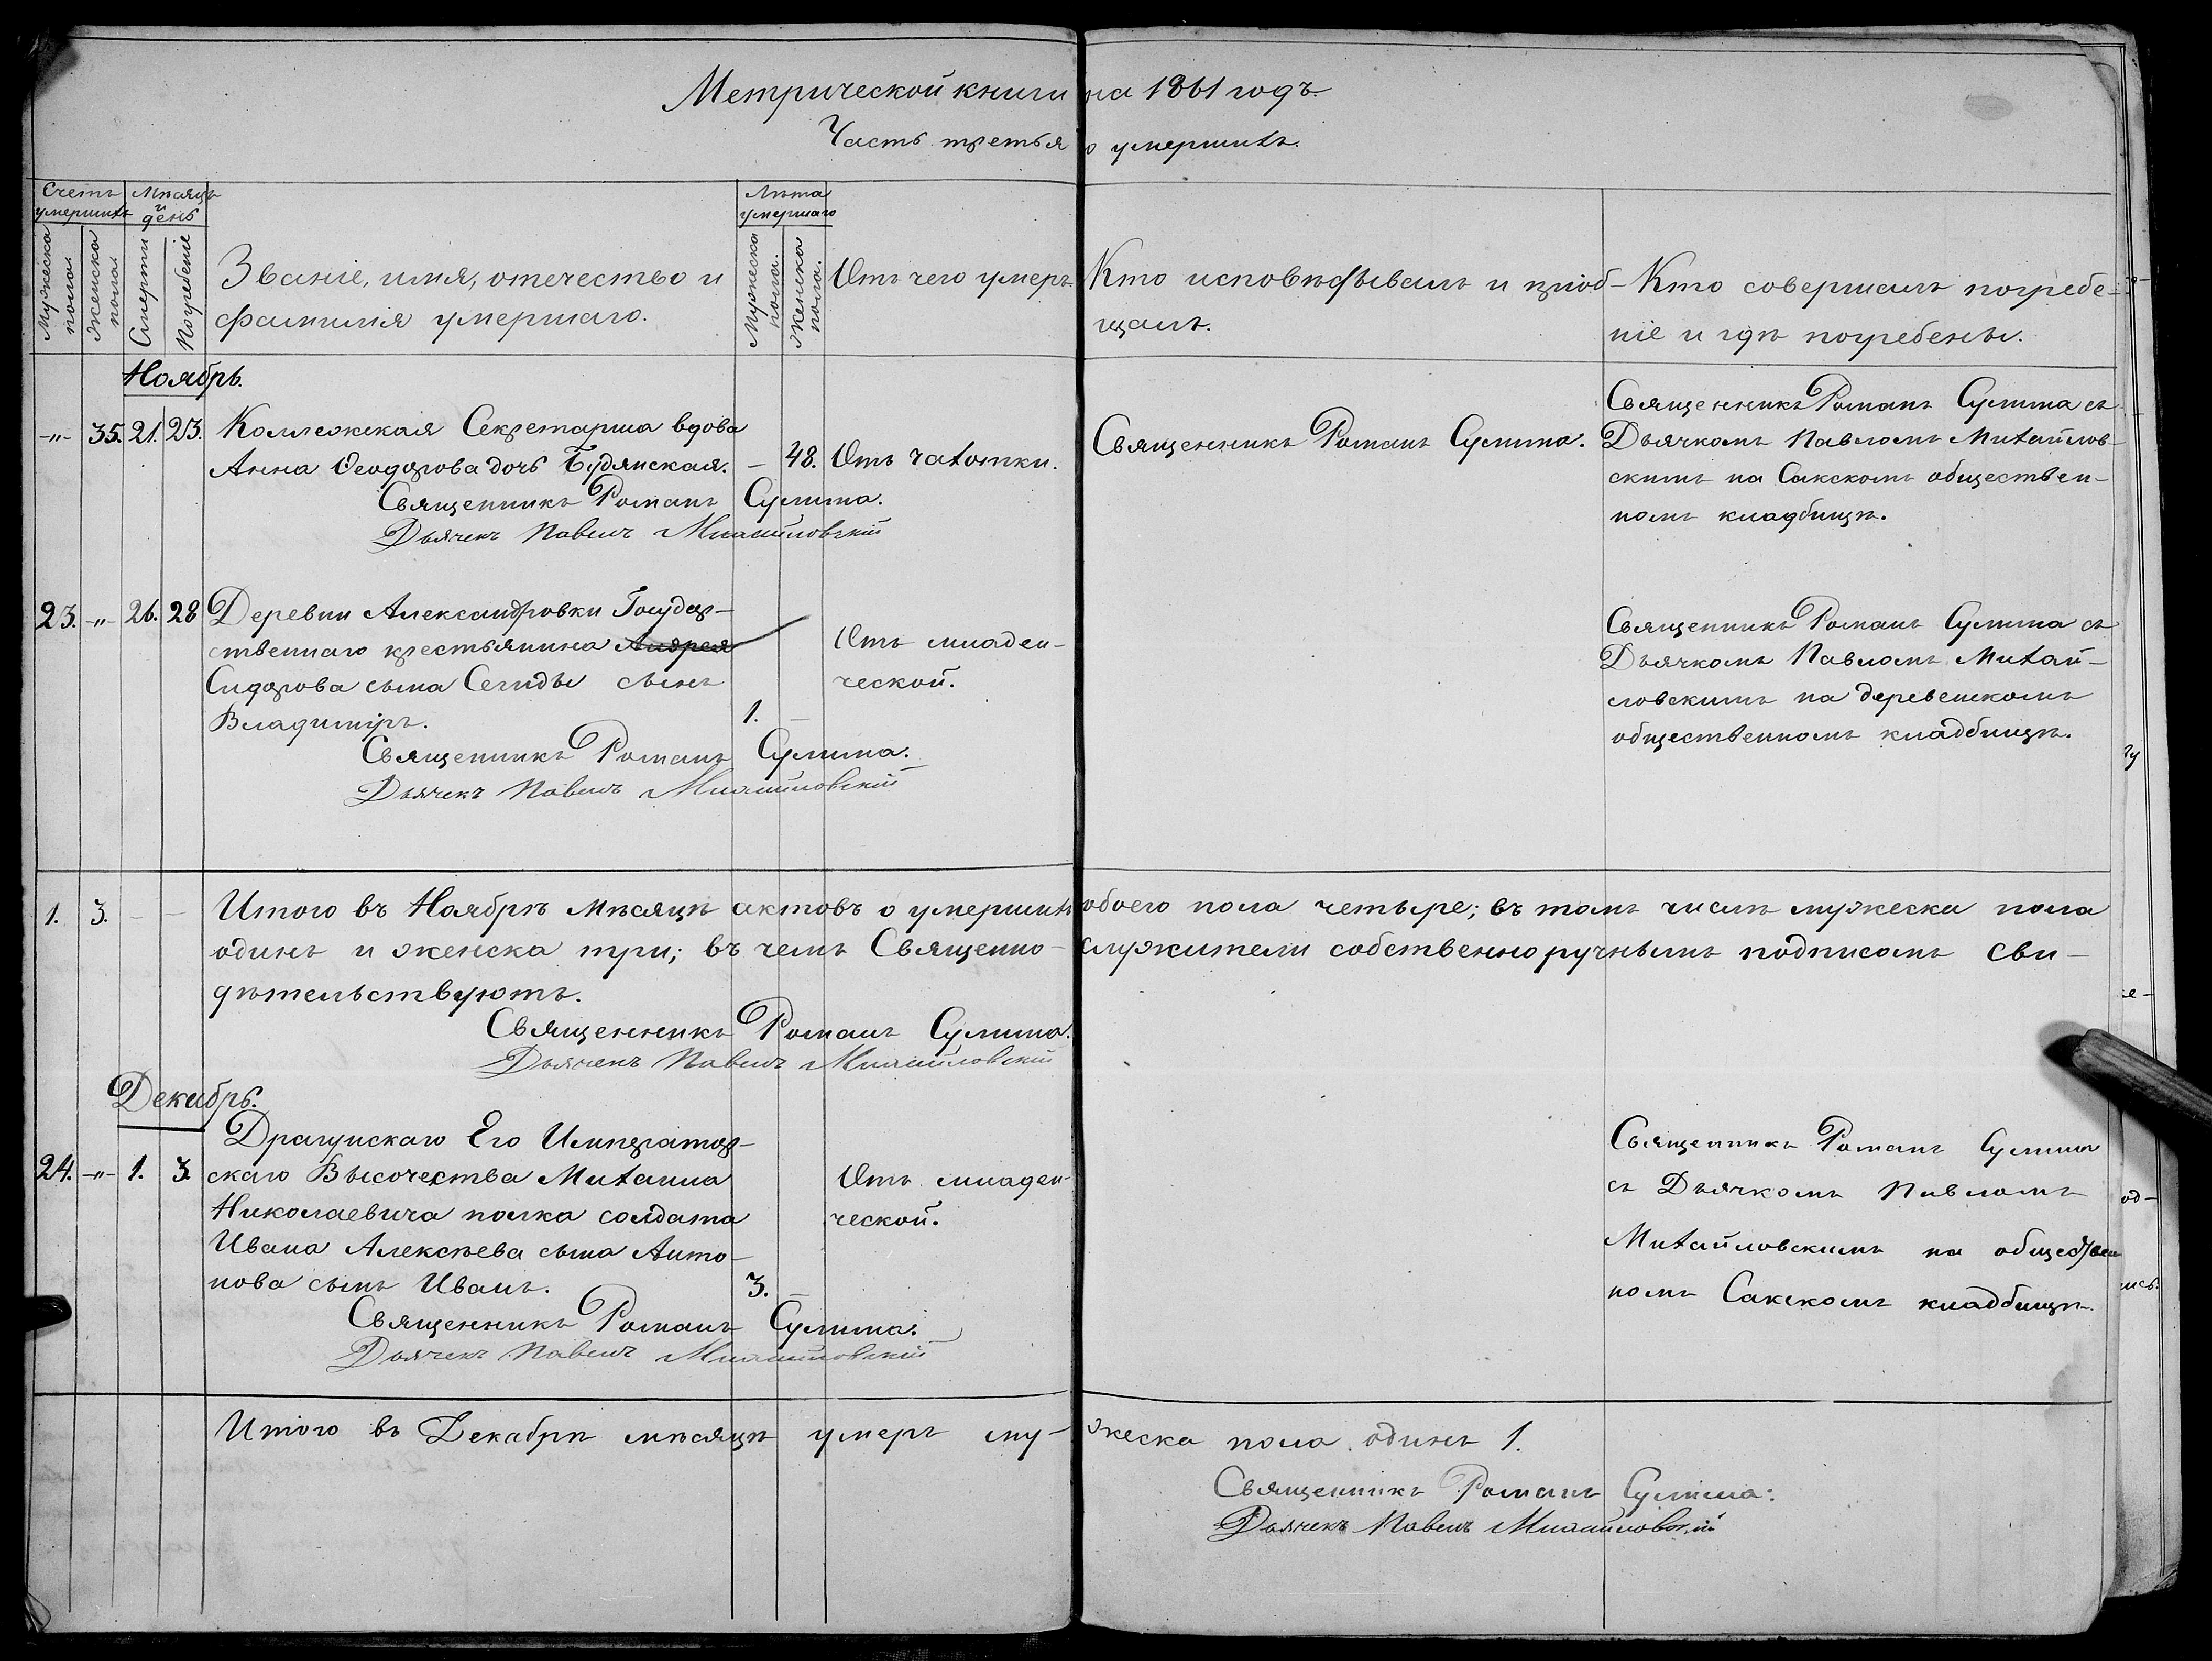 Метрической книги на 1861 годъ.
Часть третья о умершихъ.
Счетъ умершихъ
Мѣсяцъ и день
Лѣта умершаго
Мужеска пола.
Женска пола.
Смерти
Погребенiе
Званiе, имя, отечество и
фамилiя умершаго.
Мужеска пола.
Женска пола.
Отъ чего умеръ.
Кто исповѣдывалъ и прiоб-
щалъ.
Кто совершалъ погребе-
нiе и гдѣ погребены.
Ноябрь.
-"- 35. 21. 23. Коллежская Секретарша вдова
Анна Ѳеодорова дочь Будянская. – 48. Отъ чахотки.
Священникъ Романъ Сулима.
Дьячекъ Павелъ Михайловскiй
Священникъ Романъ Сулима.
Священникъ Романъ Сулима съ
Дьячкомъ Павломъ Михайлов-
скимъ на Сакскомъ обществен-
номъ кладбищѣ.
23. -"- 26. 28 Деревни Александровки Государ-
ственнаго крестьянина Андрея
Сидорова сына Сегиды сынъ
Владимiръ. 1. –
Отъ младен-
ческой.
Священникъ Романъ Сулима.
Дьячекъ Павелъ Михайловскiй
Священникъ Романъ Сулима съ
Дьячкомъ Павломъ Михай-
ловскимъ на деревенскомъ
общественномъ кладбищѣ.
1. 3. – – Итого въ Ноябрѣ мѣсяцѣ актовъ о умершихъ обоего пола четыре; въ томъ числѣ мужеска пола
одинъ и женска три; въ чемъ Священно-служители собственноручнымъ подписомъ сви-
дѣтельствуютъ.
Священникъ Романъ Сулима.
Дьячекъ Павелъ Михайловскiй
Декабрь.
24. -"- 1. 3. Драгунскаго Его Император-
скаго Высочества Михаила
Николаевича полка солдата
Ивана Алексѣева сына Анто-
нова сынъ Иванъ. 3. –
Отъ младен-
ческой.
Священникъ Романъ Сулима.
Дьячекъ Павелъ Михайловскiй
Священникъ Романъ Сулима
съ Дьячкомъ Павломъ
Михайловскимъ на обществен
номъ Сакскомъ кладбищѣ.
Итого въ Декабрѣ мѣсяцѣ умеръ му-жеска пола одинъ 1.
Священникъ Романъ Сулима.
Дьячекъ Павелъ Михайловскiй